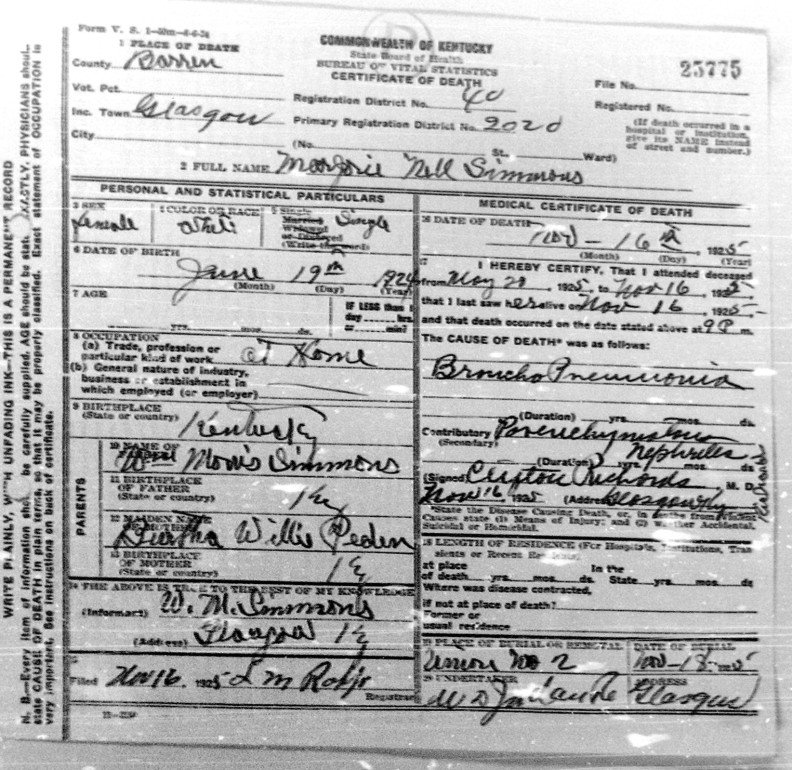 Form V. S. 1
COMMONWEALTH OF KENTUCKY
State Board of Health
BUREAU OF VITAL STATISTICS
CERTIFICATE OF DEATH
1 PLACE OF DEATH
County Barren
Vot. Pct.
Inc. Town Glasgow
City
Registration District No. 40
Primary Registration District No. 2020
(No. St. Ward)
25775
File No.
Registered No.
(If death occurred in a
hospital or institution,
give its NAME instead
of street and number.)
2 FULL NAME Marjorie Nell Simmons
PERSONAL AND STATISTICAL PARTICULARS
3 SEX
Female
4 COLOR OR RACE
White
5 Single
Married
Widowed
or Divorced
(Write the word)
Single
6 DATE OF BIRTH
June 19th 1924
(Month) (Day) (Year)
7 AGE
yrs. mos. ds.
IF LESS than 1
day hrs.
or min?
8 OCCUPATION
(a) Trade, profession or
particular kind of work At Home
(b) General nature of industry,
business or establishment in
which employed (or employer)
9 BIRTHPLACE
(State or country) Kentucky
PARENTS
10 NAME OF
Morris Simmons
11 BIRTHPLACE
OF FATHER
(State or country) Ky
12 MAIDEN NAME
OF MOTHER
Willie Peden
13 BIRTHPLACE
OF MOTHER
(State or country) Ky
14 THE ABOVE IS TRUE TO THE BEST OF MY KNOWLEDGE
(Informant) W. M. Simmons
(Address) Glasgow Ky
15
Filed Nov 16, 1925
Registrar
MEDICAL CERTIFICATE OF DEATH
16 DATE OF DEATH
Nov - 16th, 1925
(Month) (Day) (Year)
17 I HEREBY CERTIFY, That I attended deceased
from May 20 1925, to Nov 16, 1925
that I last saw her alive on Nov 16 1925
and that death occurred on the date stated above at 9 P m.
The CAUSE OF DEATH* was as follows:
Broncho Pneumonia
(Duration) yrs. mos. ds.
Contributory Parenchymatous
(Secondary) Nephritis
(Duration) yrs. mos. ds.
(Signed) Clifton Richards M. D.
Nov 16, 1925 (Address) Glasgow Ky
*State the Disease Causing Death, or, in deaths from Violent
Causes state (1) Means of Injury; and (2) whether Accidental,
Suicidal or Homicidal.
18 LENGTH OF RESIDENCE (For Hospitals, Institutions, Tran
sients or Recent Residents)
at place In the
of death yrs. mos. ds. State yrs. mos. ds
Where was disease contracted,
if not at place of death?
Former or
usual residence
19 PLACE OF BURIAL OR REMOVAL
Union No 2
DATE OF BURIAL
Nov-18-1925
20 UNDERTAKER
ADDRESS
Glasgow
WRITE PLAINLY, WITH UNFADING INK—THIS IS A PERMANENT RECORD
N. B.—Every item of information should be carefully supplied. AGE should be stated EXACTLY. PHYSICIANS should
state CAUSE OF DEATH in plain terms, so that it may be properly classified. Exact statement of OCCUPATION is
very important. See instructions on back of certificate.